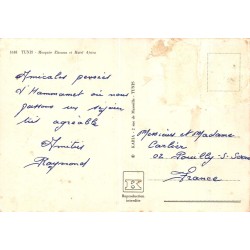 1148 TUNIS - Mosquée Zitouna et Souk Attarin
Amicales pensées
d'Hammamet où nous
passons un séjour
très agréable
Amitiés
Raymond
© KAHIA - 2 rue de Marseille - TUNIS
Messieurs et Madame
Carlier
02 Pouilly-S-Serre
France
Reproduction
interdite